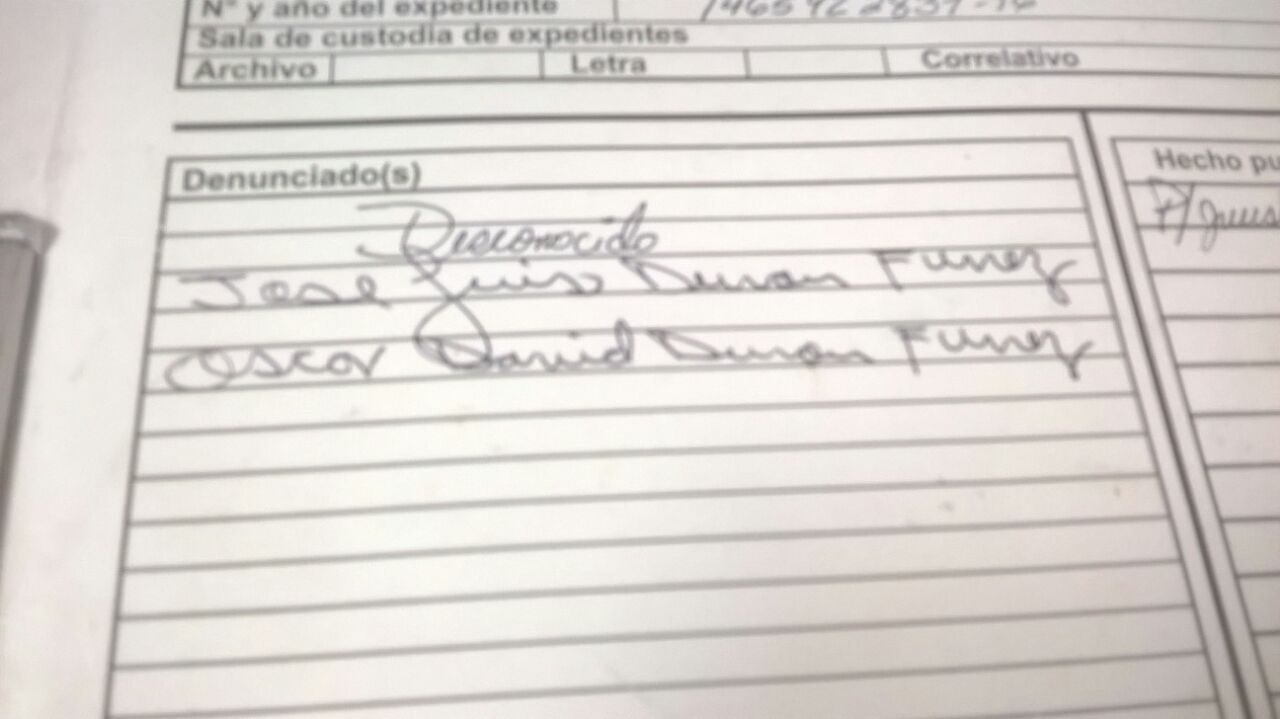 N° y año del expediente
Sala de custodia de expedientes
Archivo Letra Correlativo
Denunciado(s)
Desconocido
Jose Luis Duran Funez
Oscar David Duran Funez
Hecho pu
P/